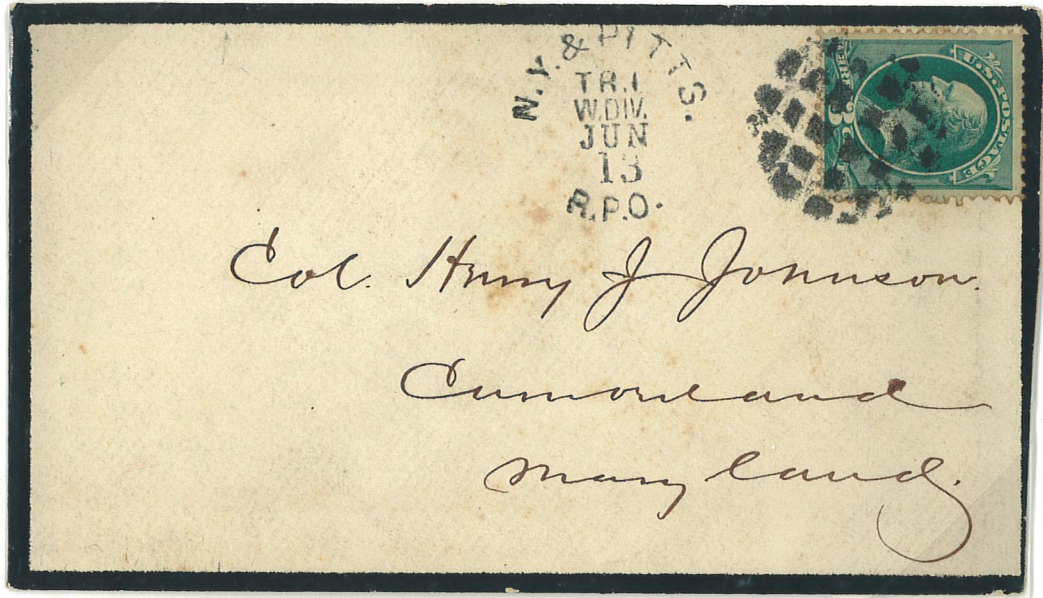 N.Y. & PITTS.
TR. 1
W. DIV.
JUN
13
R.P.O.
U.S. POSTAGE
3
Col. Henry J Johnson.
Cumberland
Maryland.